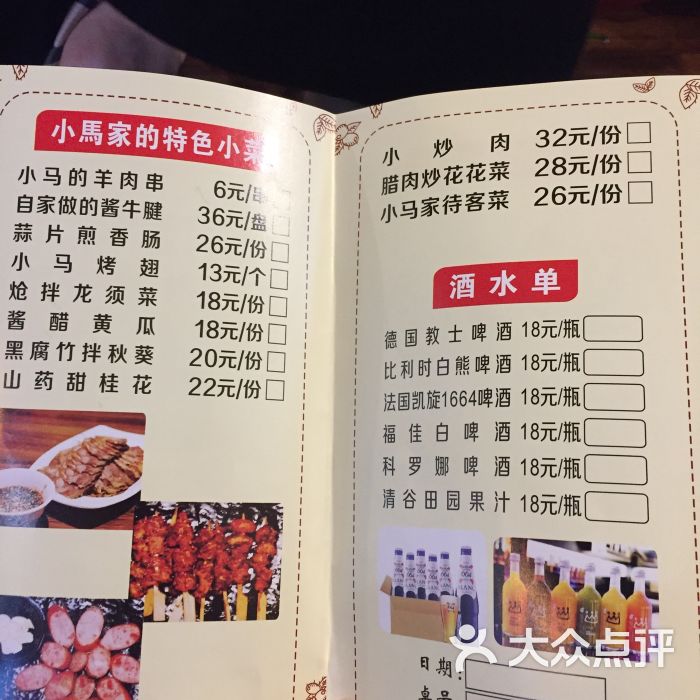 小馬家的特色小菜
小马的羊肉串 6元/串
自家做的酱牛腱 36元/盘
蒜片煎香肠 26元/份
小马烤翅 13元/个
炝拌龙须菜 18元/份
酱醋黄瓜 18元/份
黑腐竹拌秋葵 20元/份
山药甜桂花 22元/份
小炒肉 32元/份
腊肉炒花花菜 28元/份
小马家待客菜 26元/份
酒水单
德国教士啤酒 18元/瓶
比利时白熊啤酒 18元/瓶
法国凯旋1664啤酒 18元/瓶
福佳白啤酒 18元/瓶
科罗娜啤酒 18元/瓶
清谷田园果汁 18元/瓶
日期:
桌号
大众点评